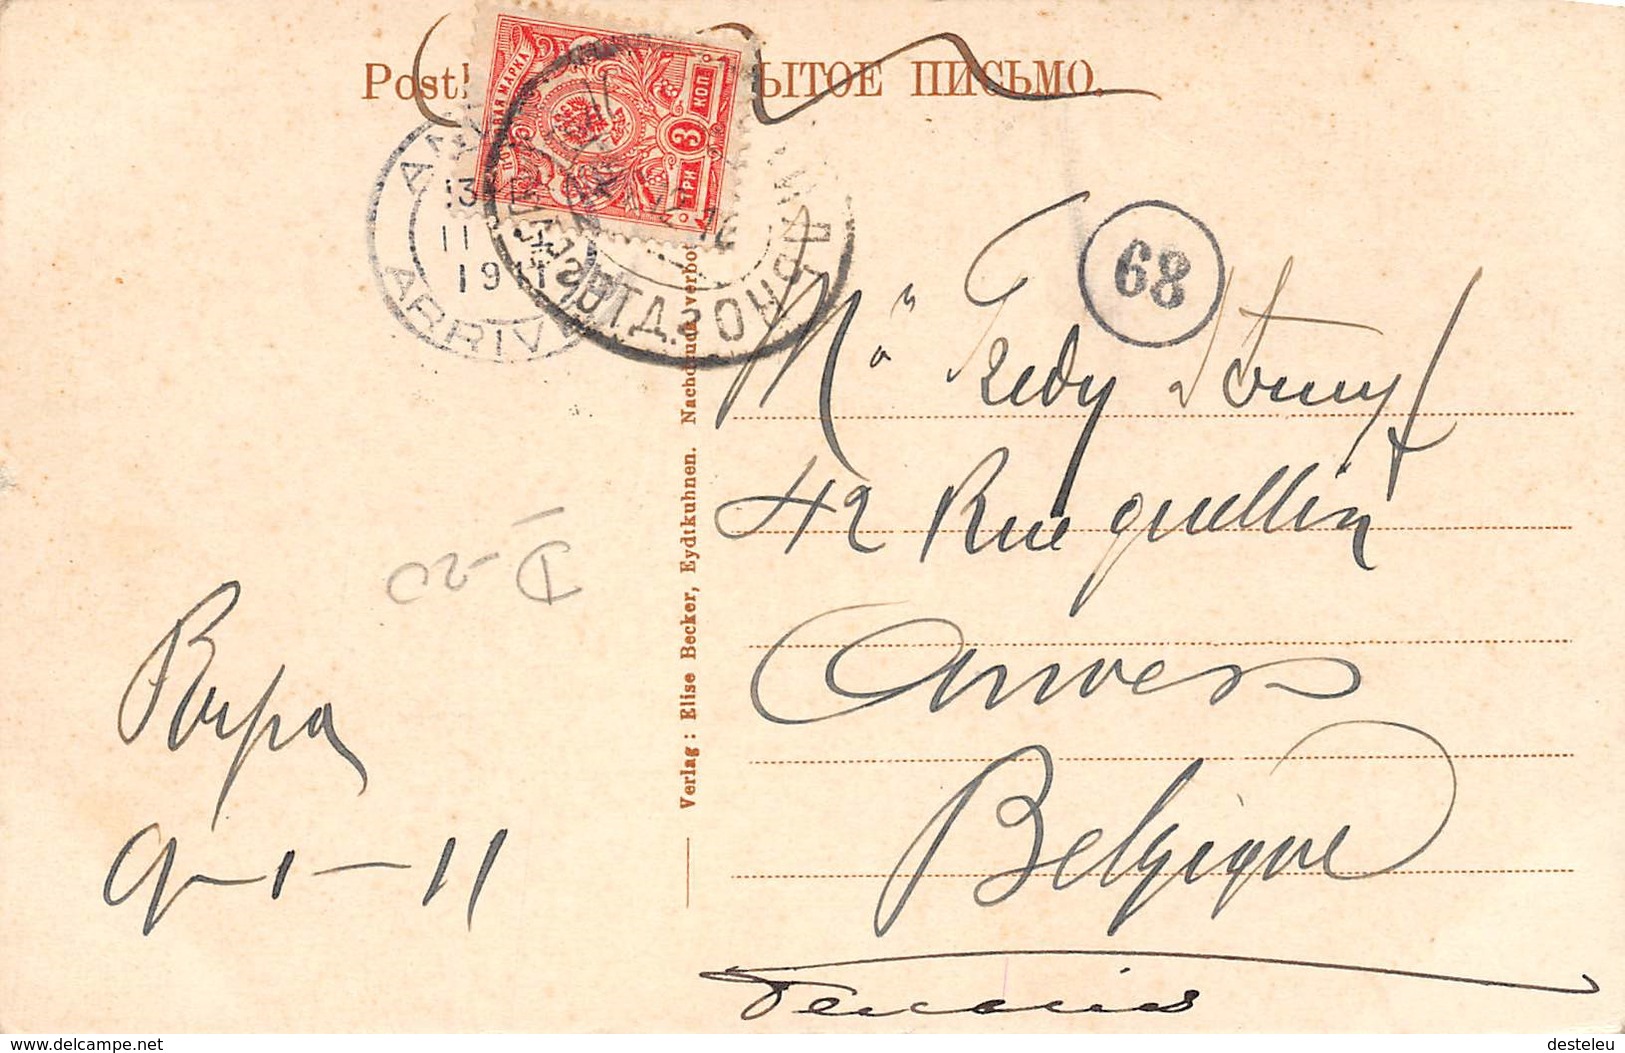 Post
ЫТОЕ ПИСЬМО.
ПОЧТОВАЯ МАРКА
3
КОП
ТРИ
13
11
1911
ARRIV
ОТД.
68
Fredy
42 Rue Quellin
Anvers
Belgique
Papa
9-1-11
D-20
Verlag: Elise Becker, Eydtkuhnen. Nachdruck verboten
delcampe.net
desteleu